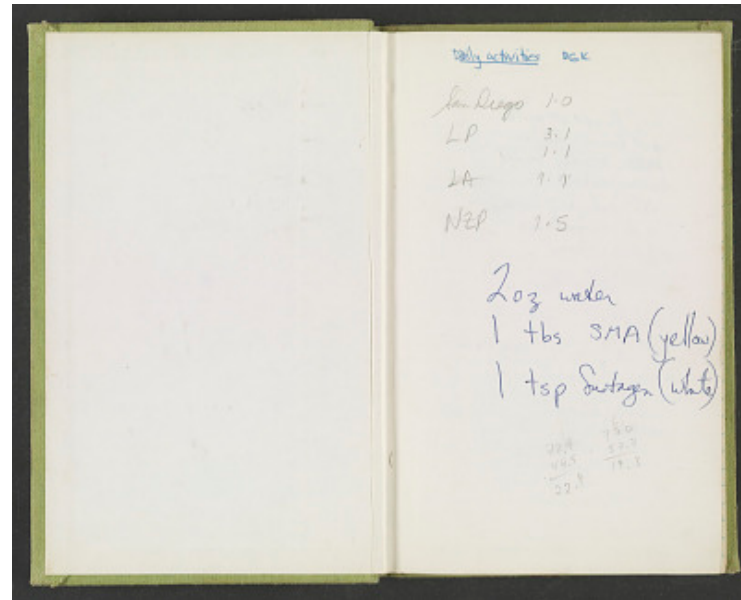 Daily activities DGK
San Diego 1.0
LP 3.1
1.1
LA
NZP 1.5
2oz water
1 tbs SMA (yellow)
1 tsp Sustagen (white)
22.9